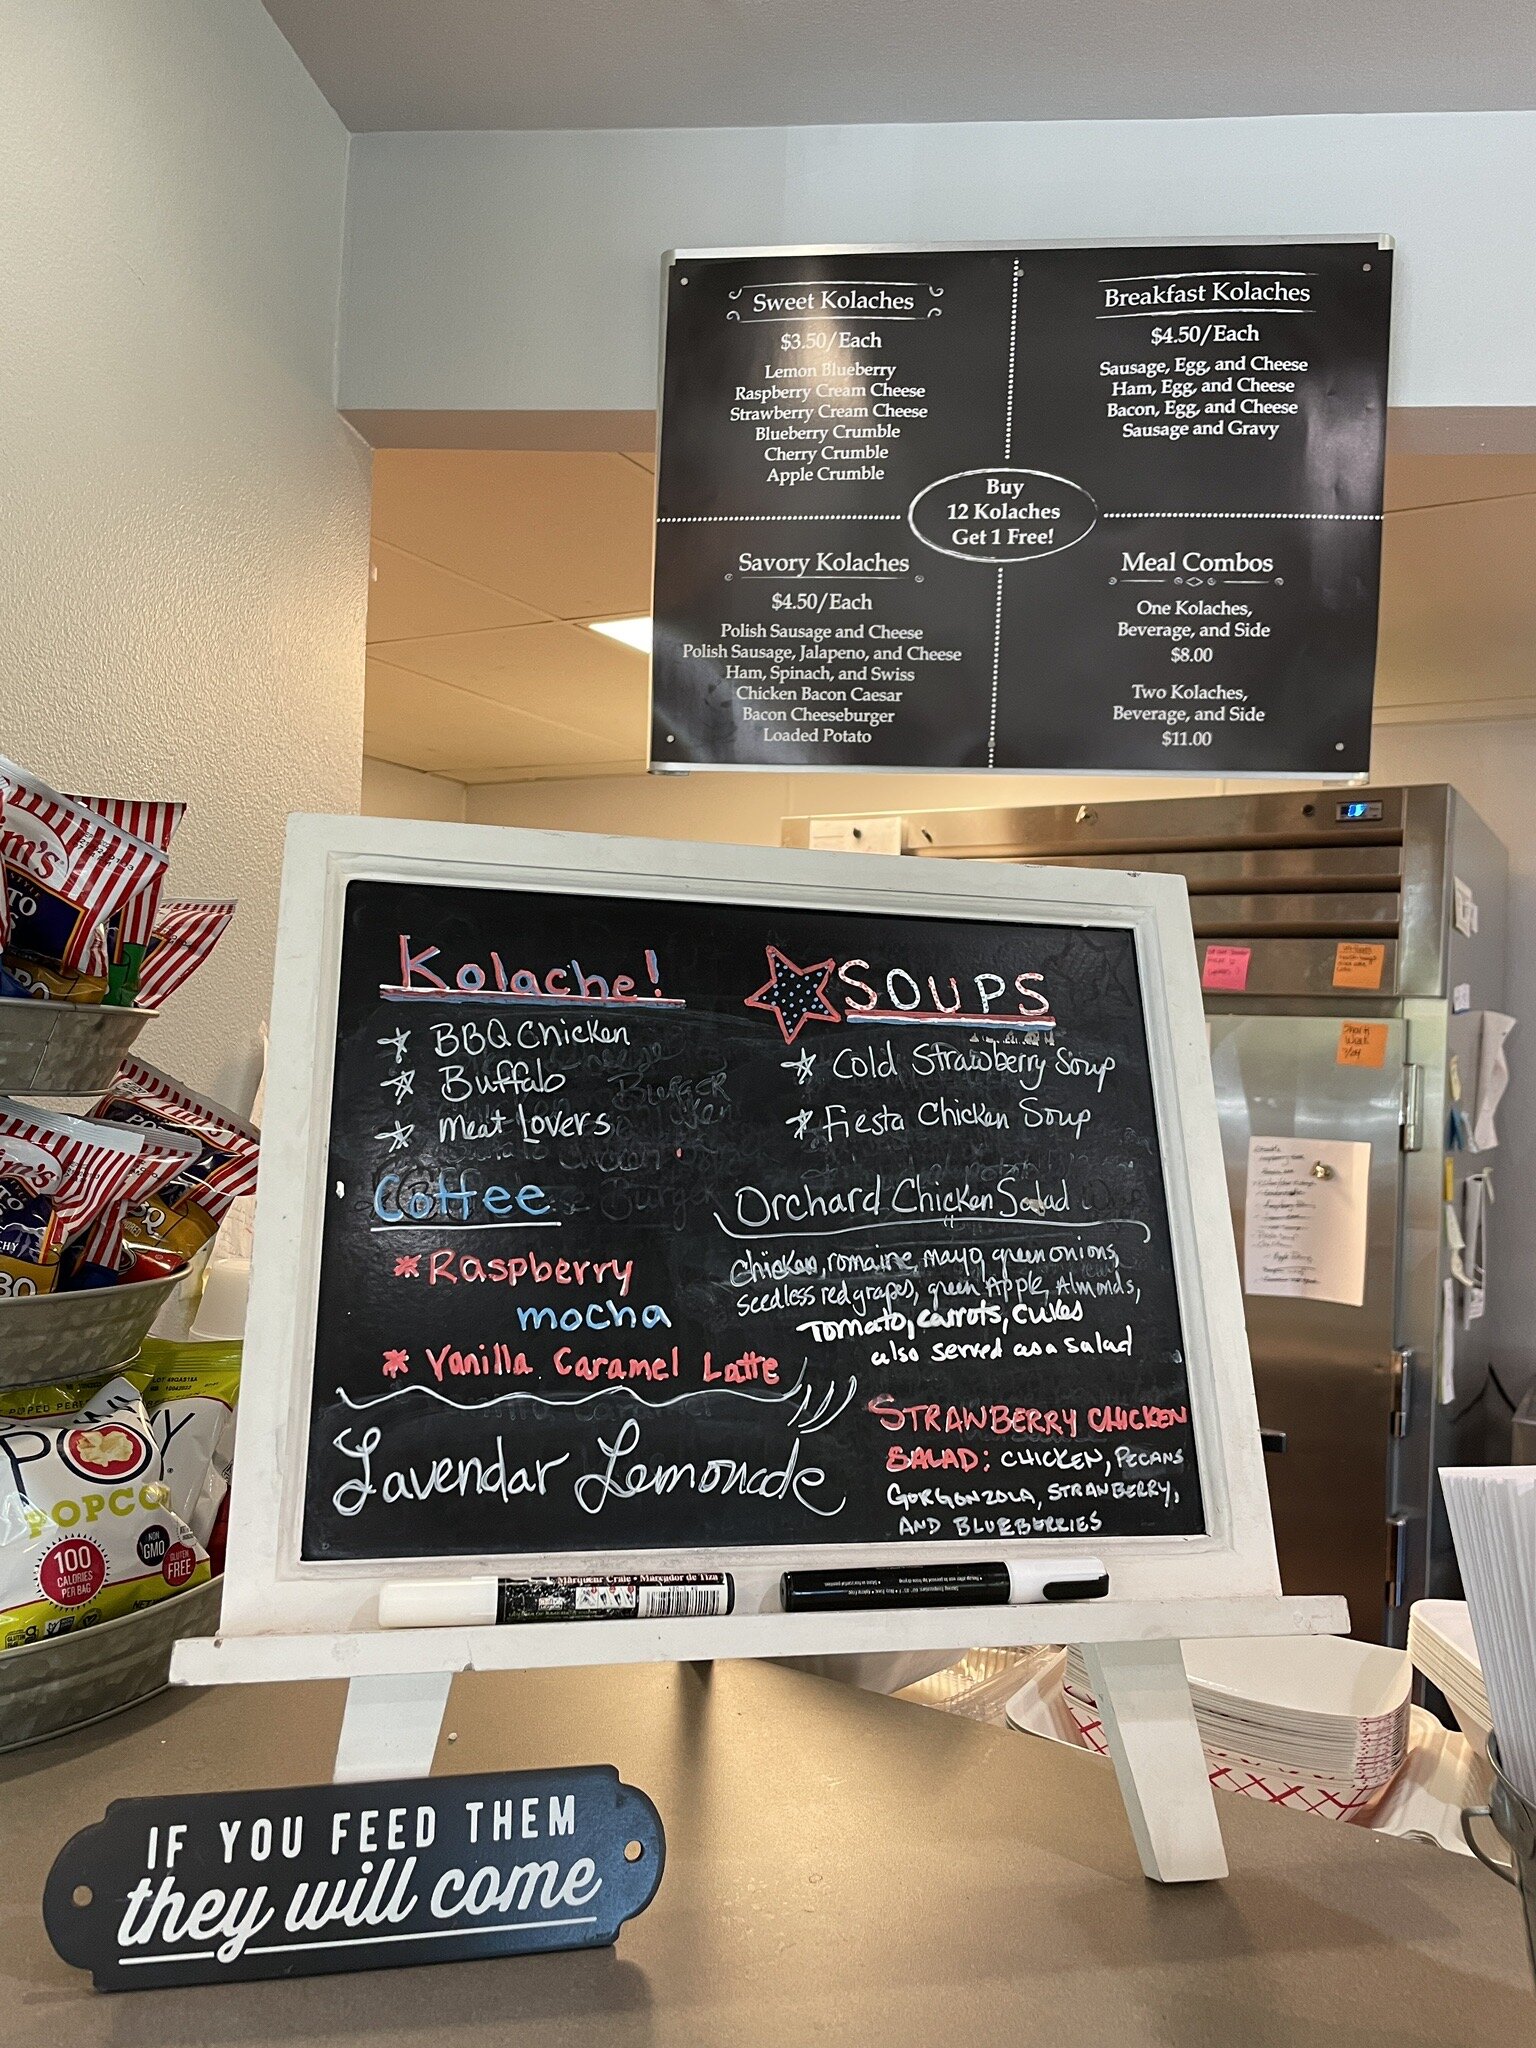 Sweet Kolaches
$3.50/Each
Lemon Blueberry
Raspberry Cream Cheese
Strawberry Cream Cheese
Blueberry Crumble
Cherry Crumble
Apple Crumble
Breakfast Kolaches
$4.50/Each
Sausage, Egg, and Cheese
Ham, Egg, and Cheese
Bacon, Egg, and Cheese
Sausage and Gravy
Buy
12 Kolaches
Get 1 Free!
Savory Kolaches
$4.50/Each
Polish Sausage and Cheese
Polish Sausage, Jalapeno, and Cheese
Ham, Spinach, and Swiss
Chicken Bacon Caesar
Bacon Cheeseburger
Loaded Potato
Meal Combos
One Kolaches,
Beverage, and Side
$8.00
Two Kolaches,
Beverage, and Side
$11.00
Kolache!
BBQ Chicken
Buffalo
Meat Lovers
Coffee
Raspberry
mocha
Vanilla Caramel Latte
Lavendar Lemonade
SOUPS
Cold Strawberry Soup
Fiesta Chicken Soup
Orchard Chicken Salad
Chicken, romaine, mayo, green onions,
seedless red grapes, green Apple, Almonds,
Tomato, carrots, cukes
also served as a salad
STRAWBERRY CHICKEN
SALAD: CHICKEN, PECANS
GORGONZOLA, STRAWBERRY,
AND BLUEBERRIES
Marqueur Craie • Marcador de Tiza
POPCO
100
CALORIES
PER BAG
NON
GMO
GLUTEN
FREE
IF YOU FEED THEM
they will come